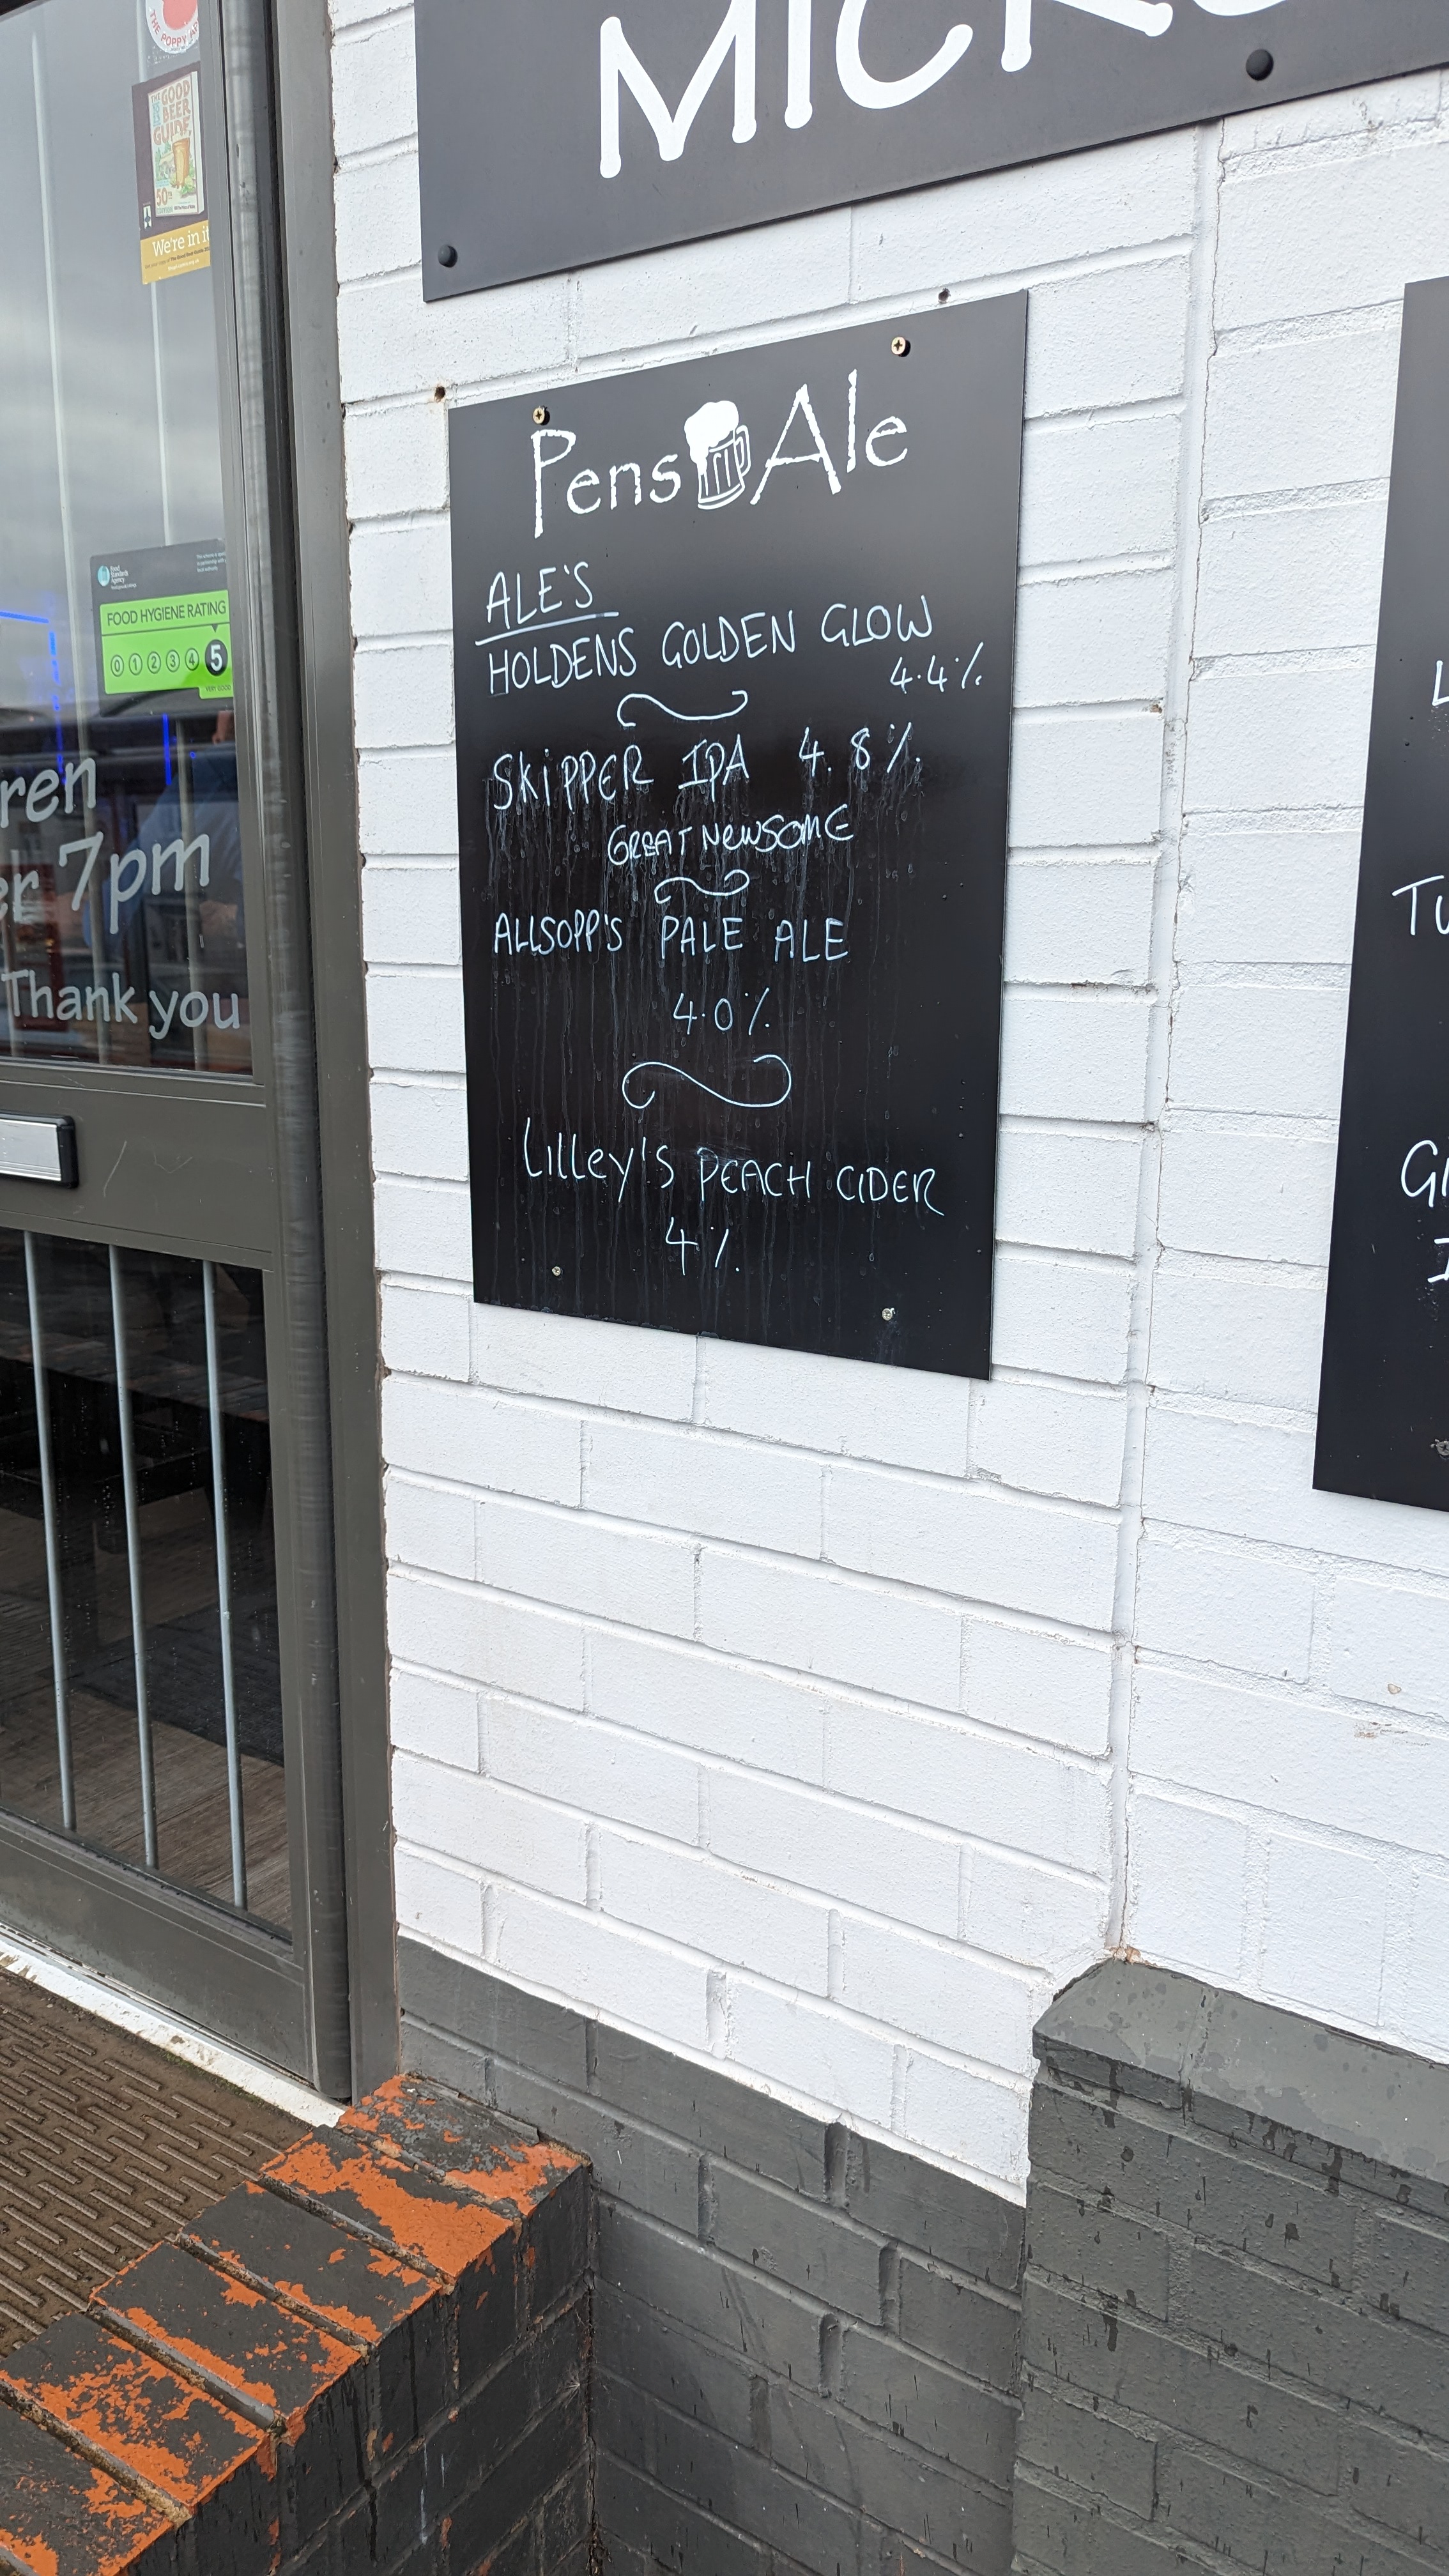 MICR
THE POPPY AP
THE GOOD BEER GUIDE
50th
We're in it
Food Standards Agency
FOOD HYGIENE RATING
0 1 2 3 4 5
VERY GOOD
ren
er 7pm
Thank you
Pens Ale
ALE'S
HOLDENS GOLDEN GLOW
4.4%
SKIPPER IPA 4.8%
GREAT NEWSOME
ALLSOPP'S PALE ALE
4.0%
Lilley's PEACH CIDER
4%
L
TU
GI
I